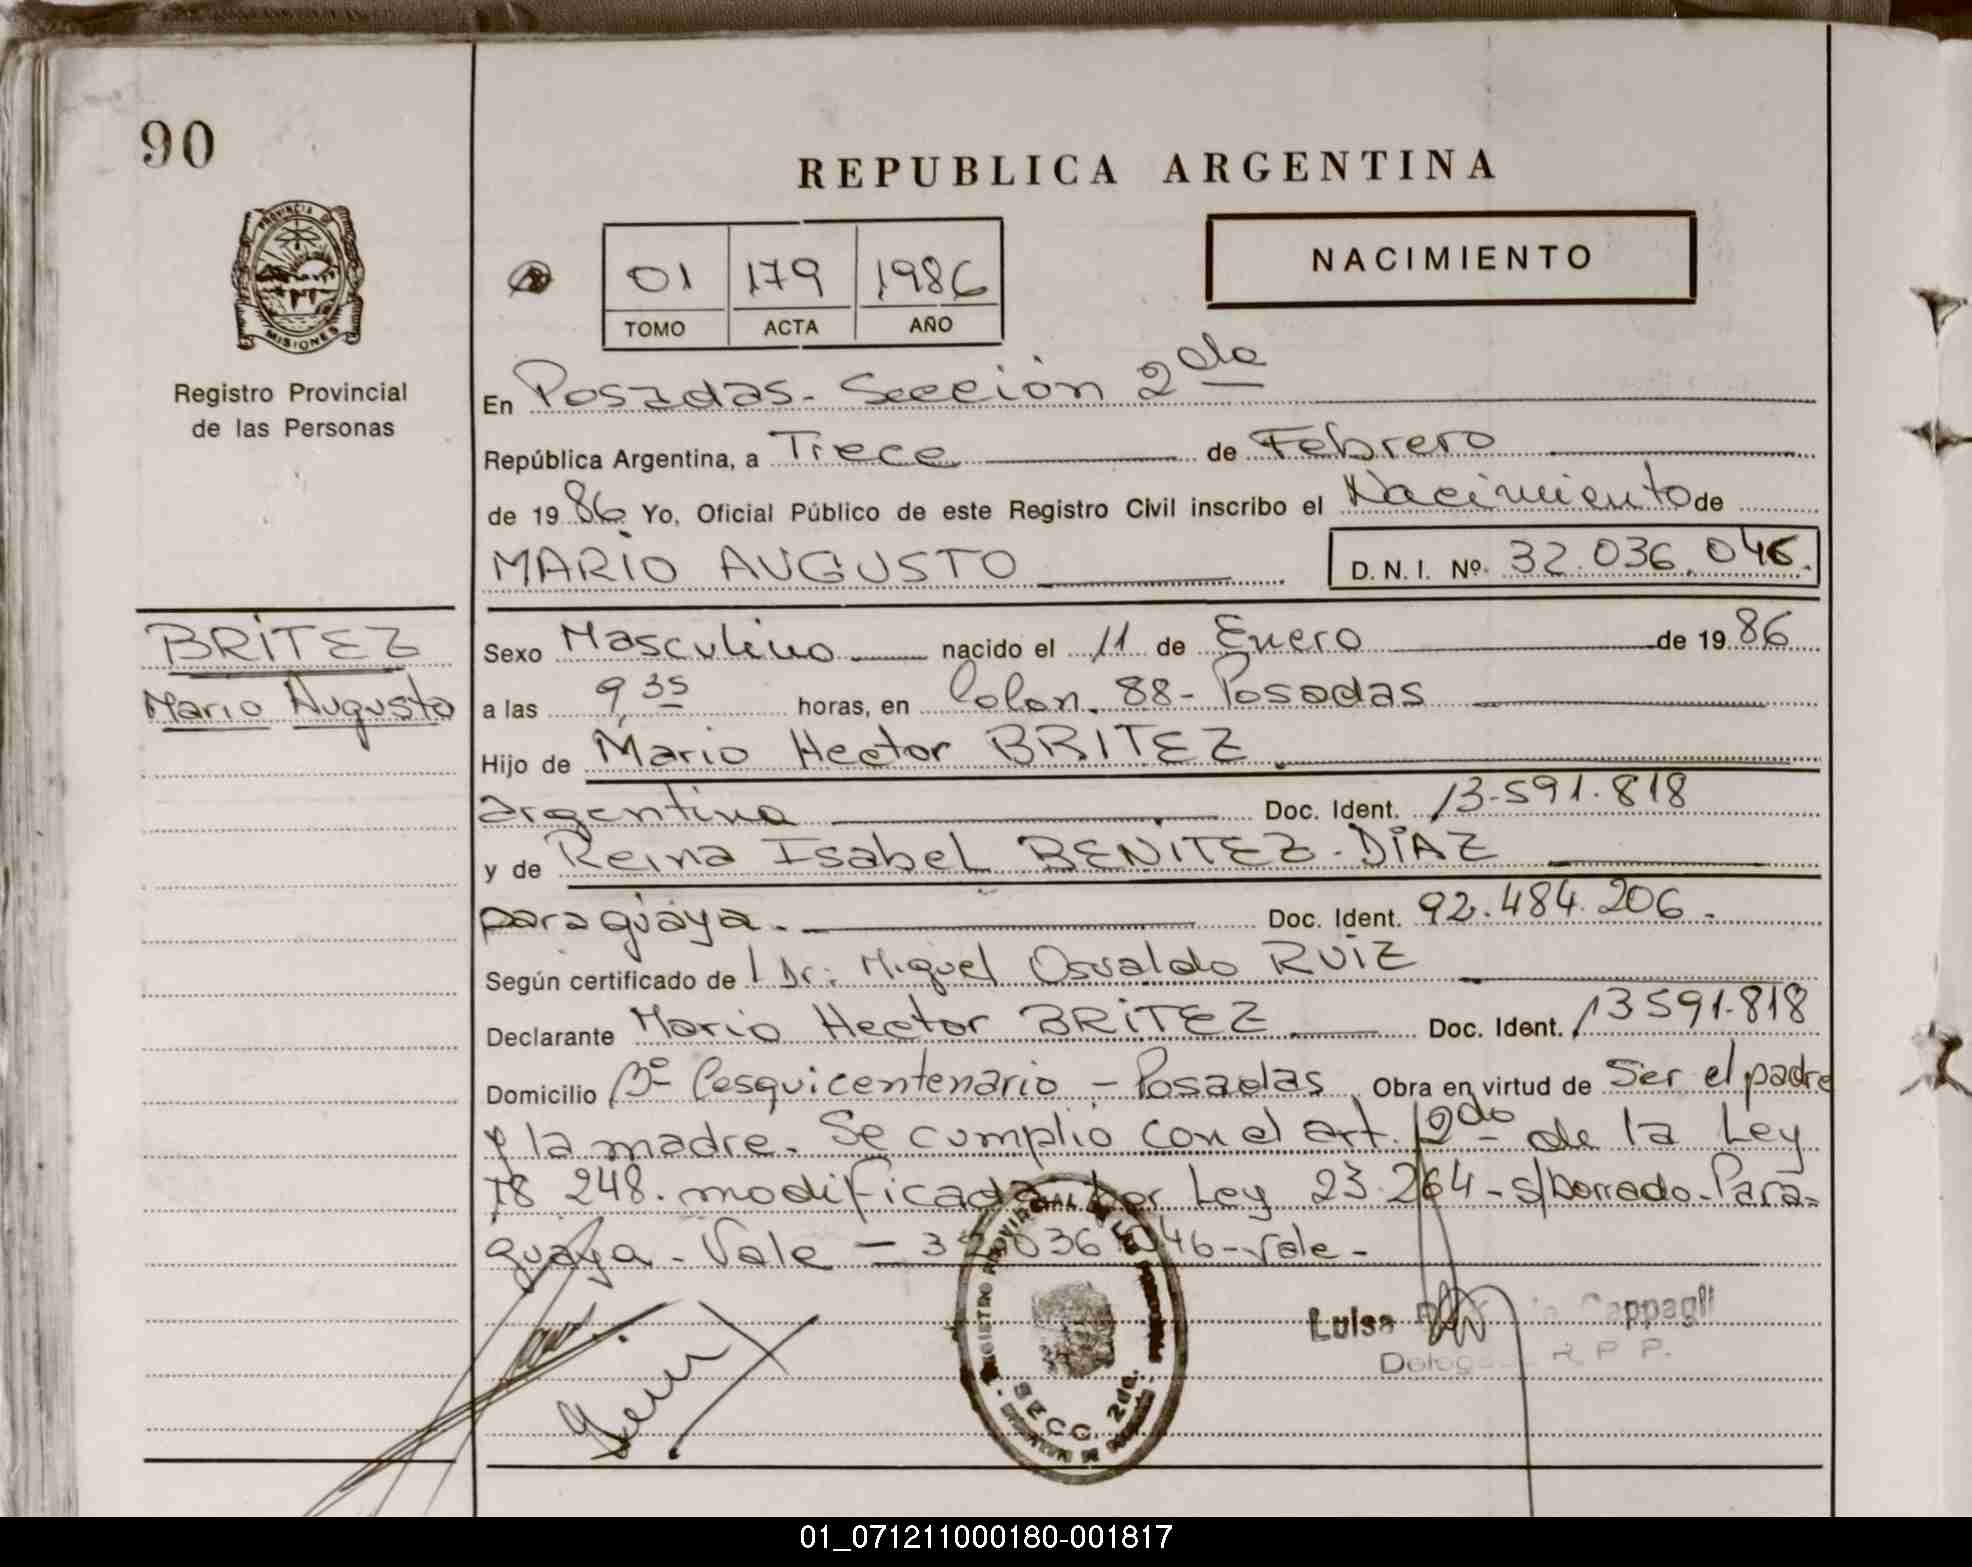 90
REPUBLICA ARGENTINA
PROVINCIA DE
MISIONES
Registro Provincial
de las Personas
01 179 1986
TOMO ACTA AÑO
NACIMIENTO
En Posadas - Sección 2da
República Argentina, a Trece de Febrero
de 1986 Yo, Oficial Público de este Registro Civil inscribo el Nacimiento de
MARIO AUGUSTO D. N. I. Nº 32.036.046.
BRITEZ
Mario Augusto
Sexo Masculino nacido el 11 de Enero de 1986
a las 9,35 horas, en Colon. 88 - Posadas
Hijo de Mario Hector BRITEZ
argentina Doc. Ident. 13.591.818
y de Reina Isabel BENITEZ - DIAZ
paraguaya. Doc. Ident. 92.484.206.
Según certificado de l Dr: Miguel Osvaldo RUIZ
Declarante Mario Hector BRITEZ Doc. Ident. 13591.818
Domicilio Bº Cesquicentenario - Posadas Obra en virtud de Ser el padre
y la madre. Se cumplio con el art. 2do de la Ley
18 248. modificada por Ley 23.264 - s/borrado - Para-
guaya - Vale - 32036046 - vale -
REGISTRO PROVINCIAL DE LAS
SECC. 2da.
Luisa Cappagli
R. P. P.
01_071211000180-001817